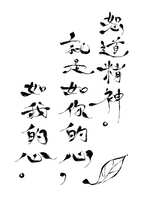 恕道精神。
就是如你的心，
如我的心。